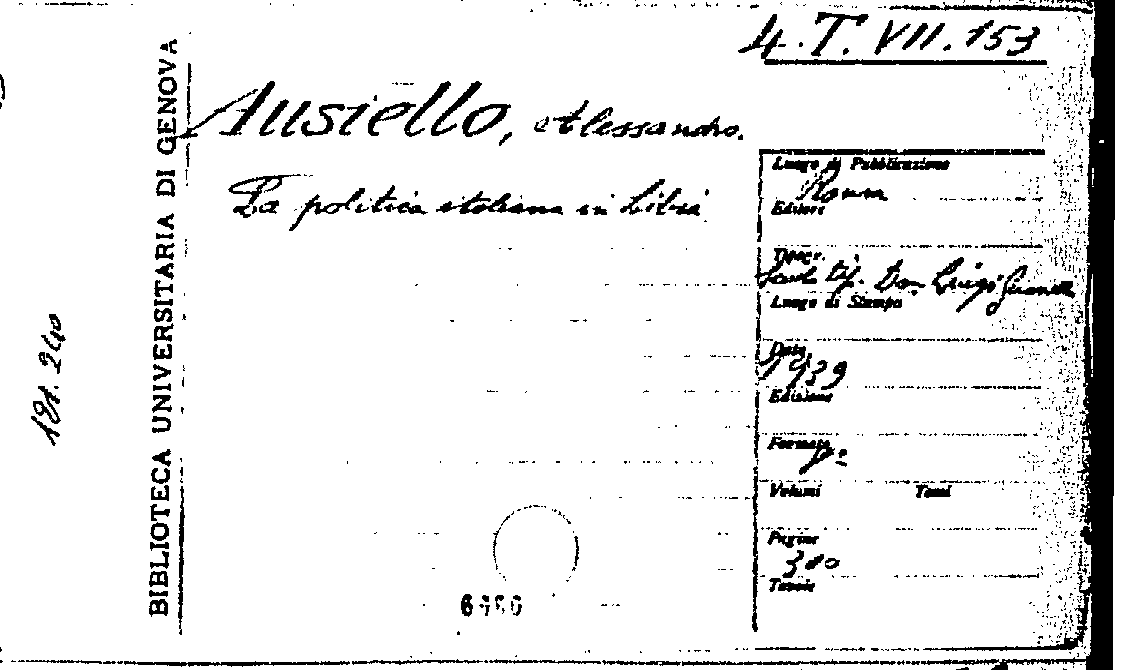 4. T. VII. 153
Ausiello, Alessandro.
La politica italiana in Libia
BIBLIOTECA UNIVERSITARIA DI GENOVA
181. 240
Luogo di Pubblicazione
Roma
Editore
Tipogr.
Scuola Tip. Don Luigi Guanella
Luogo di Stampa
Data
1939
Edizione
Formato
8°
Volumi Tomi
Pagine
310
Tavole